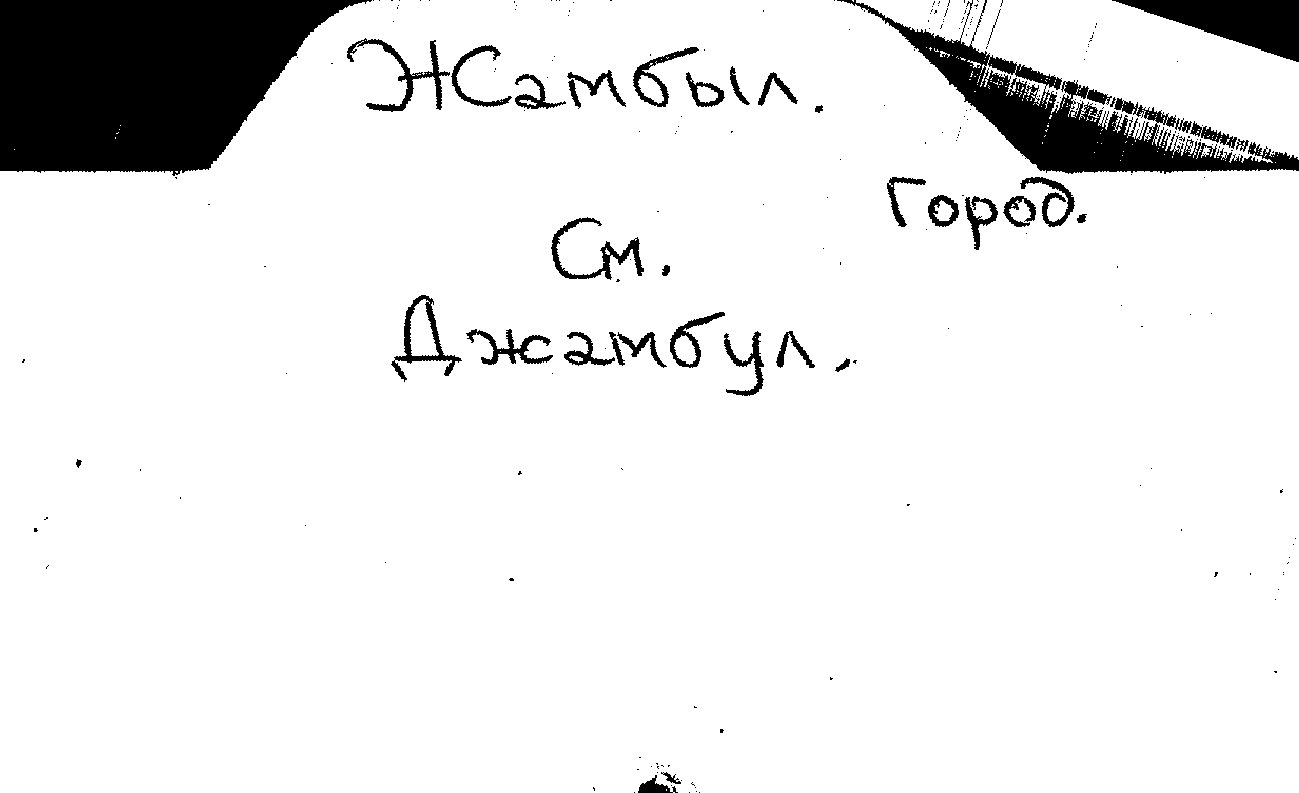 Жамбыл.
Город.
См.
Джамбул.